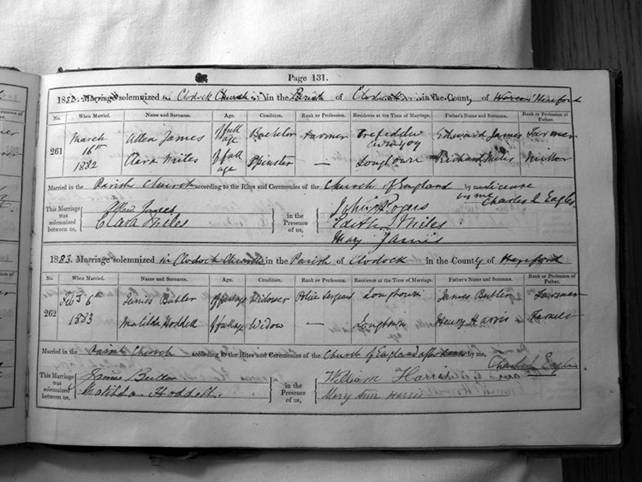 Page 131.
1882. Marriage solemnized in Clodock Church in the Parish of Clodock in the County of Hereford
No. When Married. Name and Surname. Age. Condition. Rank or Profession. Residence at the Time of Marriage. Father's Name and Surname. Rank or Profession of Father.
261 March 16th 1882 Allen James Of full age Bachelor Farmer Edward James Farmer
Clara Miles Of full age Spinster — Longtown Richard Miles
Married in the Parish Church according to the Rites and Ceremonies of the Church of England by Licence by me, Charles L Eagles
This Marriage was solemnized between us, James Clara Miles in the Presence of us, John Rogers
Edith Miles
Mary Jarvis
1883. Marriage solemnized in Clodock Church in the Parish of Clodock in the County of Hereford
No. When Married. Name and Surname. Age. Condition. Rank or Profession. Residence at the Time of Marriage. Father's Name and Surname. Rank or Profession of Father.
262 Feb 6th 1883 James Butler Of full age Widower Police Sergeant Longtown James Butler Farmer
Matilda Hoddell Of full age Widow — Longtown Henry Harris Farmer
Married in the Parish Church according to the Rites and Ceremonies of the Church of England by me,
This Marriage was solemnized between us, James Butler Matilda Hoddell in the Presence of us, William Harris
Mary Ann Harris